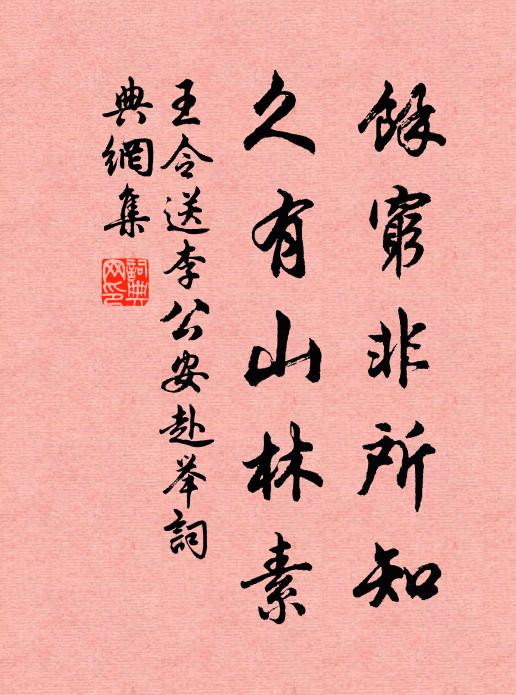 餘窮非所知
久有山林素
王令送李公安赴举詞
典網集
詞典
网印